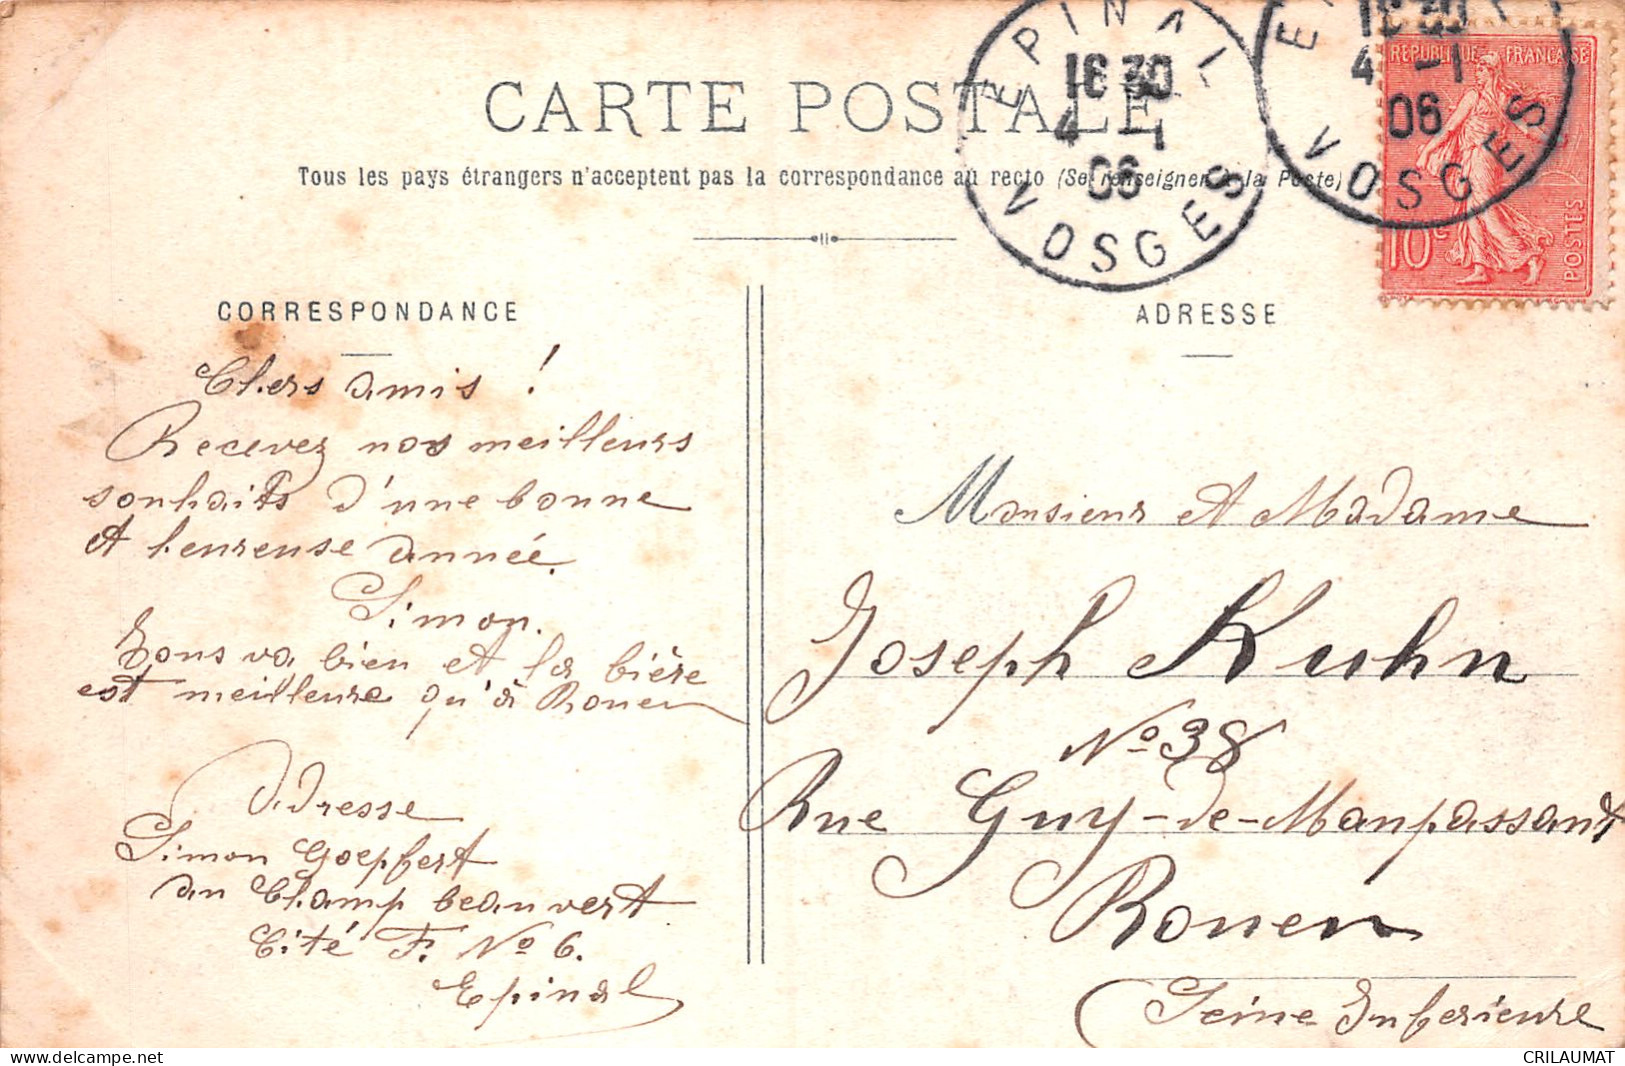 CARTE POSTALE
Tous les pays étrangers n'acceptent pas la correspondance au recto (Se renseigner à la Poste)
EPINAL
16 30
4 -1
06
VOSGES
16 30
4 -1
06
VOSGES
REPUBLIQUE FRANÇAISE
10 c
POSTES
CORRESPONDANCE
Chers amis !
Recevez nos meilleurs
souhaits d'une bonne
et heureuse année.
Simon.
Tous va bien et la bière
est meilleure qu'à Rouen
Adresse
Simon Goepfert
au Champ beauvert
Cité F. No 6.
Epinal
ADRESSE
Monsieur et Madame
Joseph Kuhn
No 38
Rue Guy-de-Maupassant
Rouen
(Seine Inferieure
CRILAUMAT